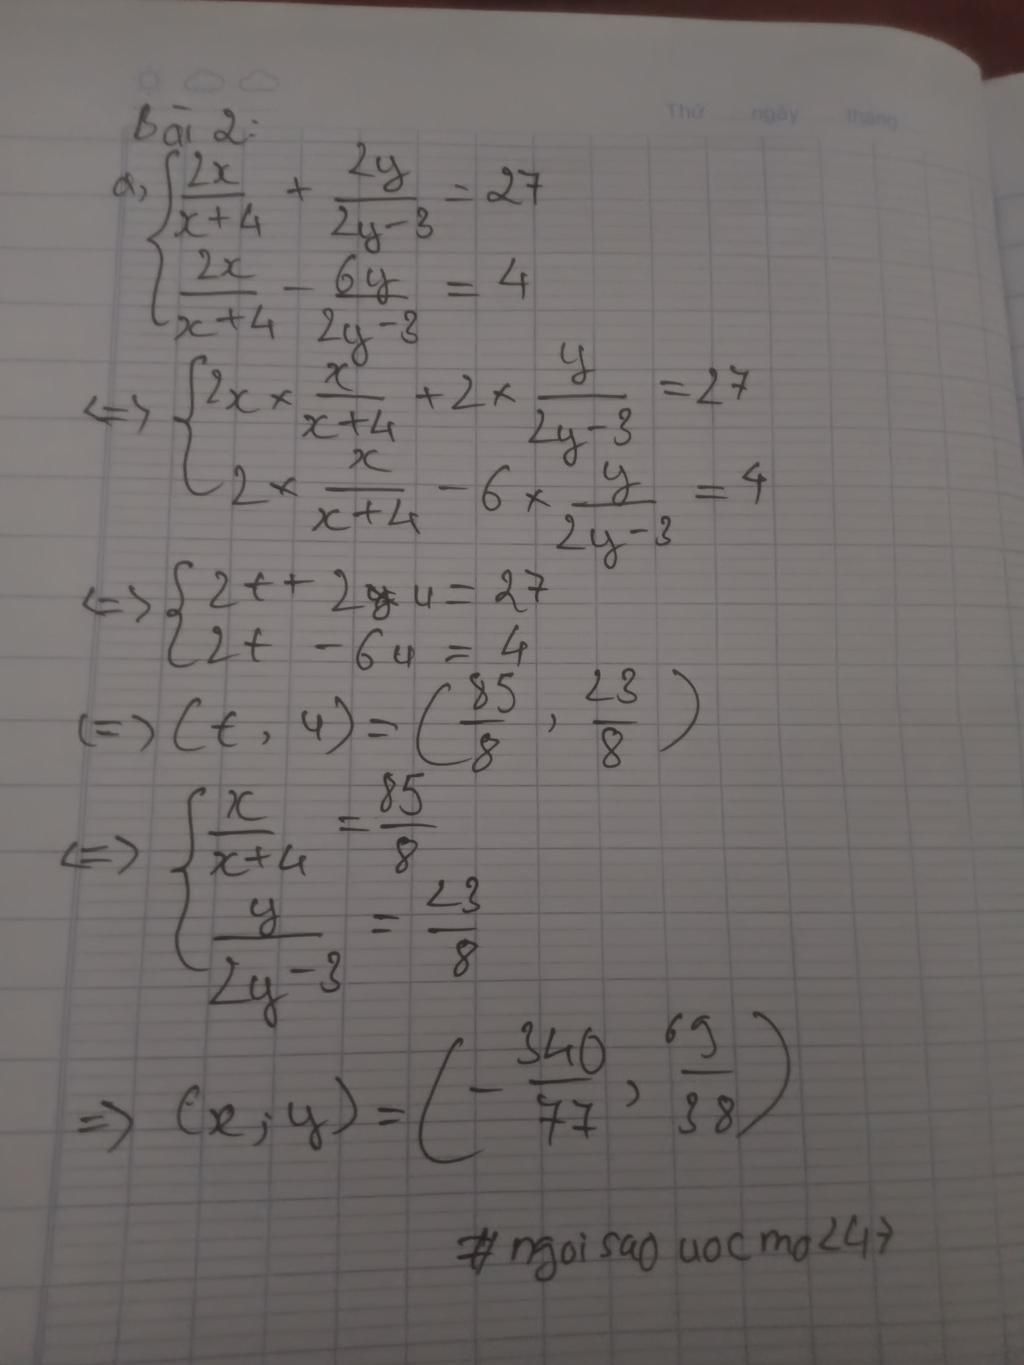 Thứ ngày tháng
Bài 2:
a, { 2x/(x+4) + 2y/(2y-3) = 27
2x/(x+4) - 6y/(2y-3) = 4
<=> { 2x × x/(x+4) + 2 × y/(2y-3) = 27
2 × x/(x+4) - 6 × y/(2y-3) = 4
<=> { 2t + 2u = 27
2t - 6u = 4
<=> (t, u) = (85/8, 23/8)
<=> { x/(x+4) = 85/8
y/(2y-3) = 23/8
=> (x; y) = (-340/77, 69/38)
#ngoi sao uoc mo 247